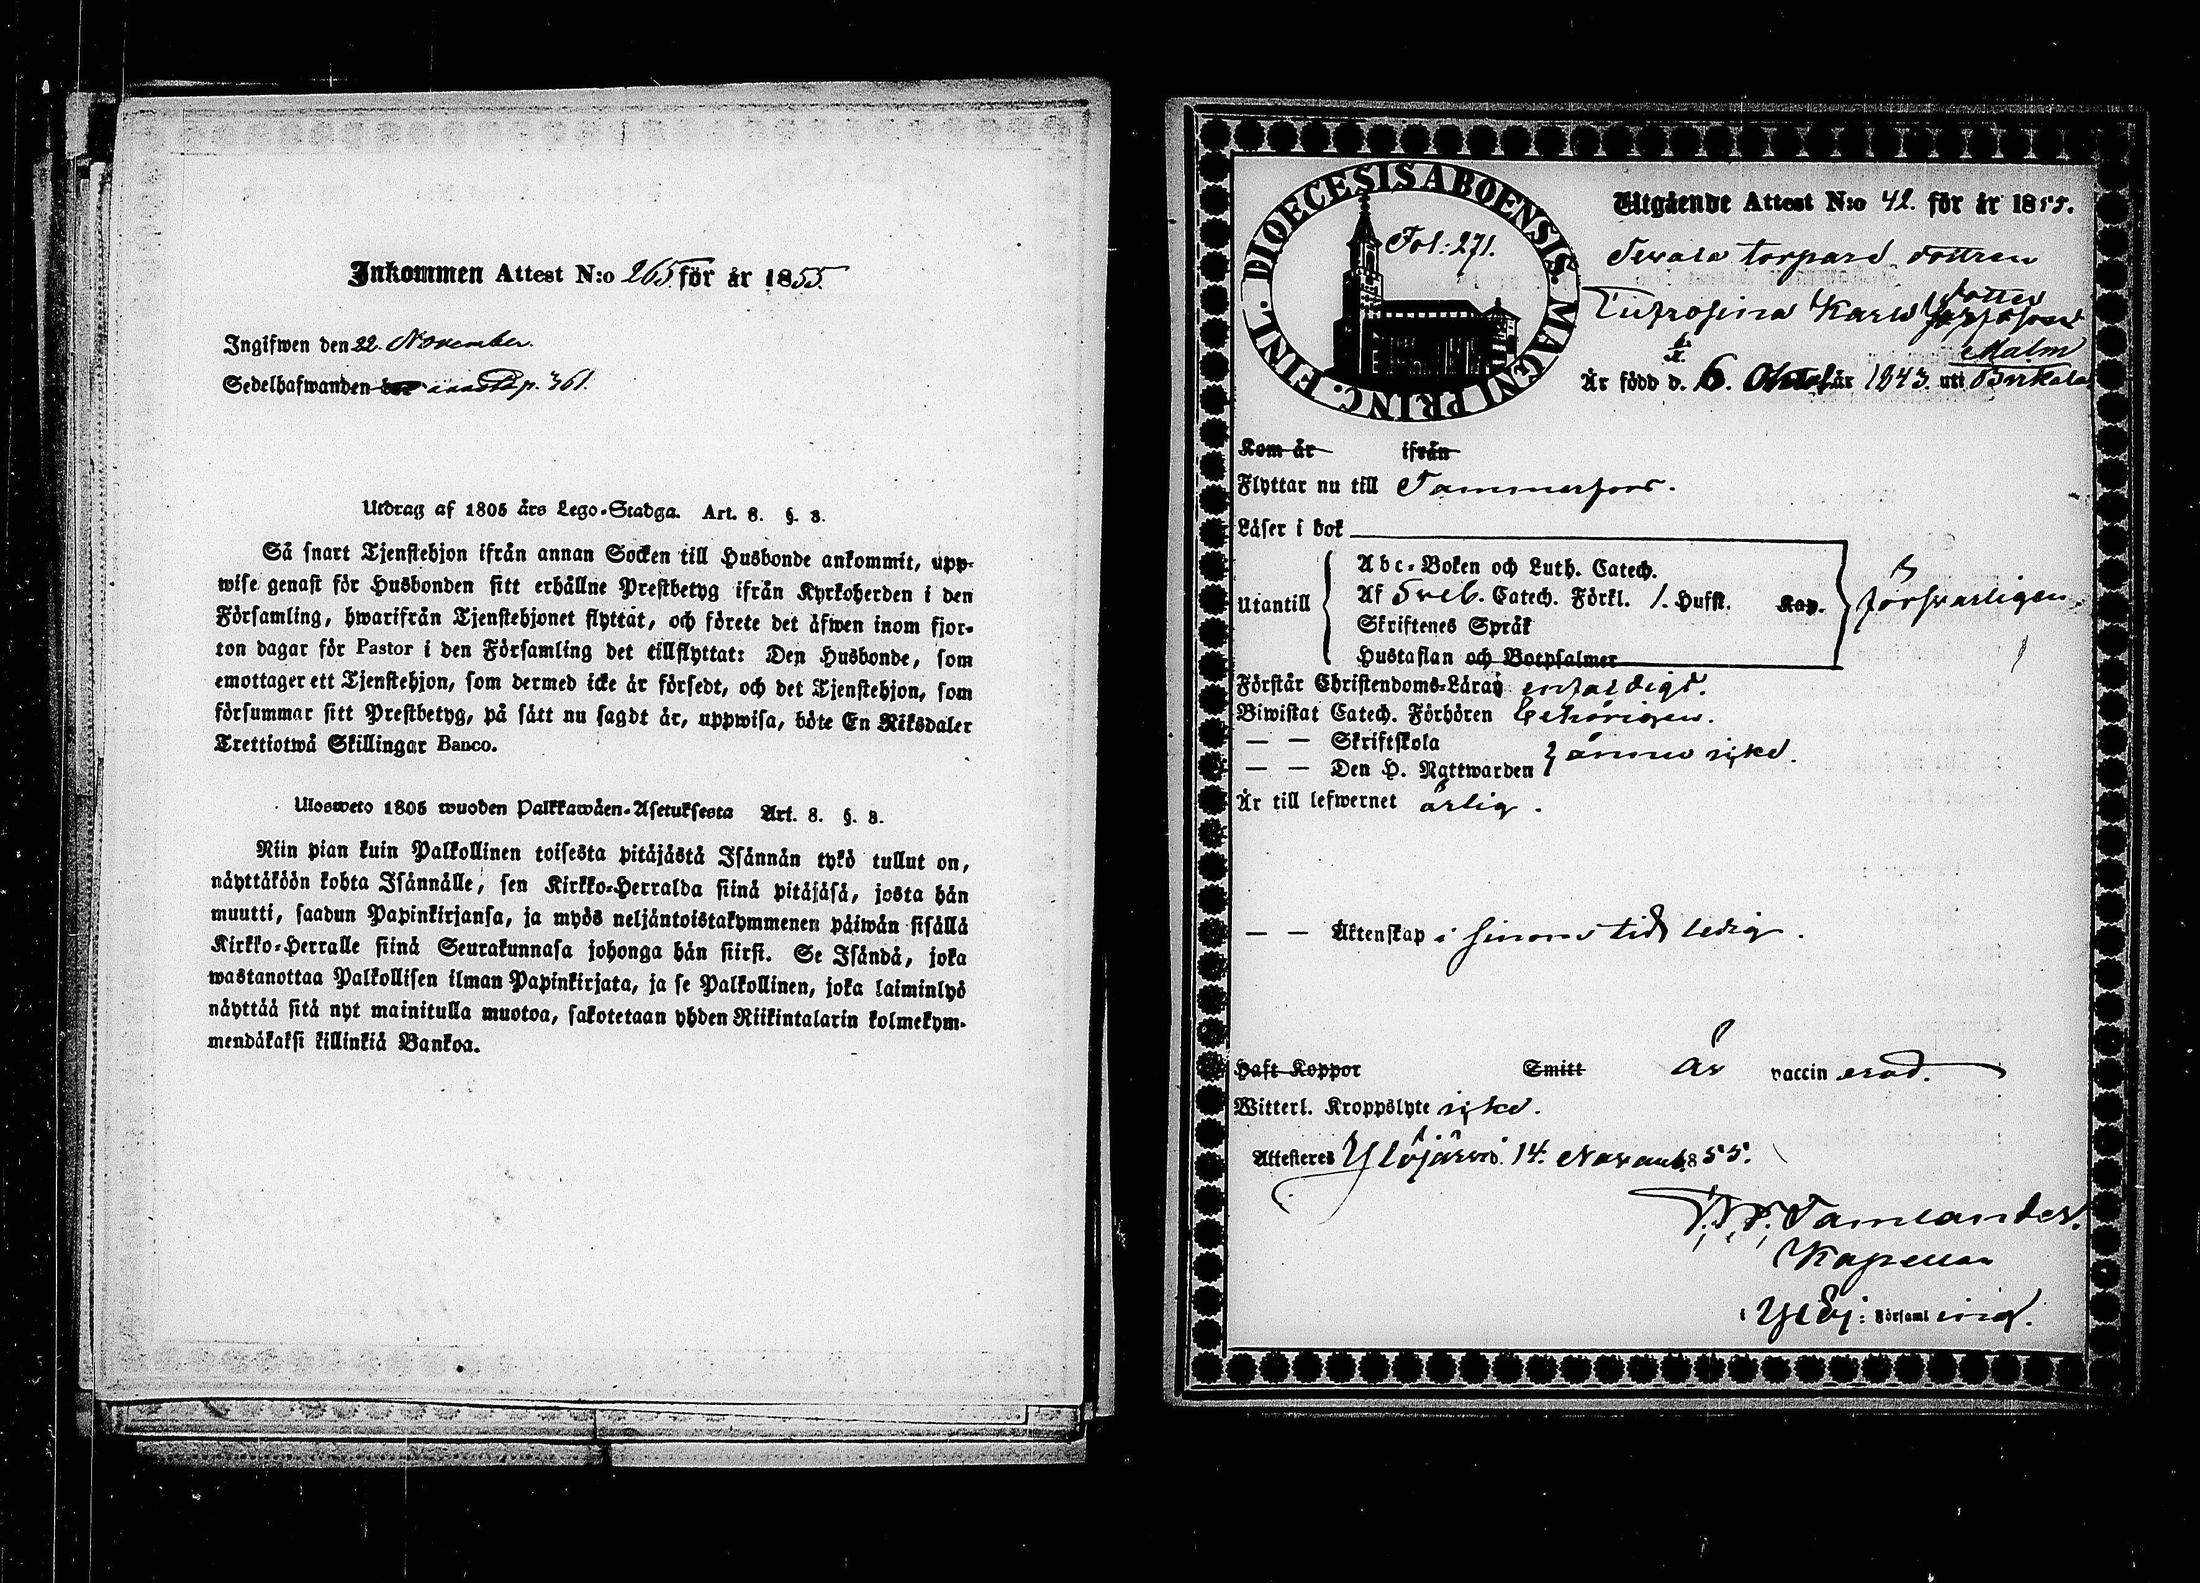 Inkommen Attest N:o 265 för år 1855.
Ingifwen den 22. November.
Sedelhafwanden p. 361.
Utdrag af 1805 års Lego-Stadga. Art. 8. §. 3.
Så snart Tjenstehjon ifrån annan Socken till Husbonde ankommit, upp-
wise genast för Husbonden sitt erhållne Prestbetyg ifrån Kyrkoherden i den
Församling, hwarifrån Tjenstehjonet flyttat, och förete det äfwen inom fjor-
ton dagar för Pastor i den Församling det tillflyttat: Den Husbonde, som
emottager ett Tjenstehjon, som dermed icke är försedt, och det Tjenstehjon, som
försummar sitt Prestbetyg, på sätt nu sagdt är, uppwisa, böte En Riksdaler
Trettiotwå Skillingar Banco.
Ulosweto 1805 wuoden Palkkawäen-Asetuksesta Art. 8. §. 3.
Niin pian kuin Palkollinen toisesta pitäjästä Isännän tykö tullut on,
näyttäköön kohta Isännälle, sen Kirkko-Herralda siinä pitäjäsä, josta hän
muutti, saadun Papinkirjansa, ja myös neljäntoistakymmenen päiwän sisällä
Kirkko-Herralle siinä Seurakunnasa johonga hän siirsi. Se Isändä, joka
wastanottaa Palkollisen ilman Papinkirjata, ja se Palkollinen, joka laiminlyö
näyttää sitä nyt mainitulla muotoa, sakotetaan yhden Riikintalarin kolmekym-
mendäkaksi killinkiä Bankoa.
DIOECESIS ABOENSIS. MAGNI PRINC. FINL.
Fol: 271.
Utgående Attest N:o 42. för år 1855.
torpare dottren
Eufrosina Karls dotter
Malm
Är född d. 6. Oktob. år 1843. uti Birkala
Kom år ifrån
Flyttar nu till Tammerfors.
Läser i bok
Utantill
Abc-Boken och Luth. Catech.
Af Sveb. Catech. Förkl. 1. Hufst. Kap.
Skriftenes Språk
Hustaflan och Botpsalmer
försvarligen.
Förstår Christendoms-Läran enfaldigt.
Biwistat Catech. Förhören behörigen.
— — Skriftskola
— — Den H. Nattwarden ännu icke.
Är till lefwernet ärlig.
— — Äktenskap i sinom tid ledig.
Haft Koppor Smitt är vaccinerad.
Witterl. Kroppslyte icke.
Attesteres Ylöjärvi d. 14. Novemb. 1855.
Tamlander.
Kapellan
i Ylöj: Församling.